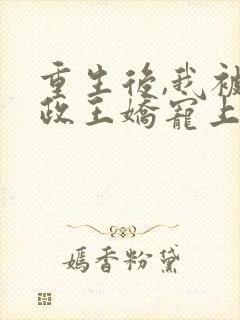 重生後,我被
政王嬌寵上
嫣香粉黛